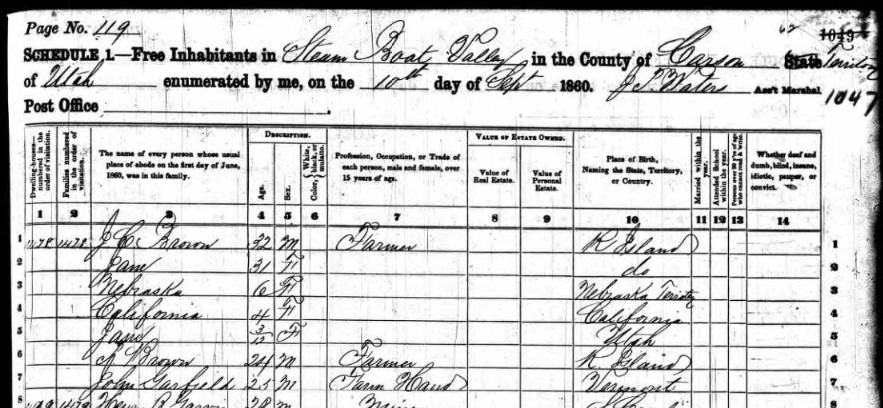 Page No. 119
62
1049
SCHEDULE 1.—Free Inhabitants in Steam Boat Valley in the County of Carson State Territory
of Utah enumerated by me, on the 10th day of Sept 1860. J. Waters Ass't Marshal
1047
Post Office
Dwelling-houses—numbered in the order of visitation.
Families numbered in the order of visitation.
The name of every person whose usual place of abode on the first day of June, 1860, was in this family.
DESCRIPTION.
Age.
Sex.
Color, White, black, or mulatto.
Profession, Occupation, or Trade of each person, male and female, over 15 years of age.
VALUE OF ESTATE OWNED.
Value of Real Estate.
Value of Personal Estate.
Place of Birth, Naming the State, Territory, or Country.
Married within the year.
Attended School within the year.
Persons over 20 y'rs of age who cannot read & write.
Whether deaf and dumb, blind, insane, idiotic, pauper, or convict.
1 2 3 4 5 6 7 8 9 10 11 12 13 14
1 1478 1478 J C Brown 32 M Farmer R Island 1
2 Jane 31 F do 2
3 Nebraska 6 F Nebraska Territy 3
4 California 4 F California 4
5 Jane 3/12 F Utah 5
6 Brown 24 M Farmer R Island 6
7 John Garfield 25 M Farm Hand Vermont 7
8 1479 1479 28 M 8